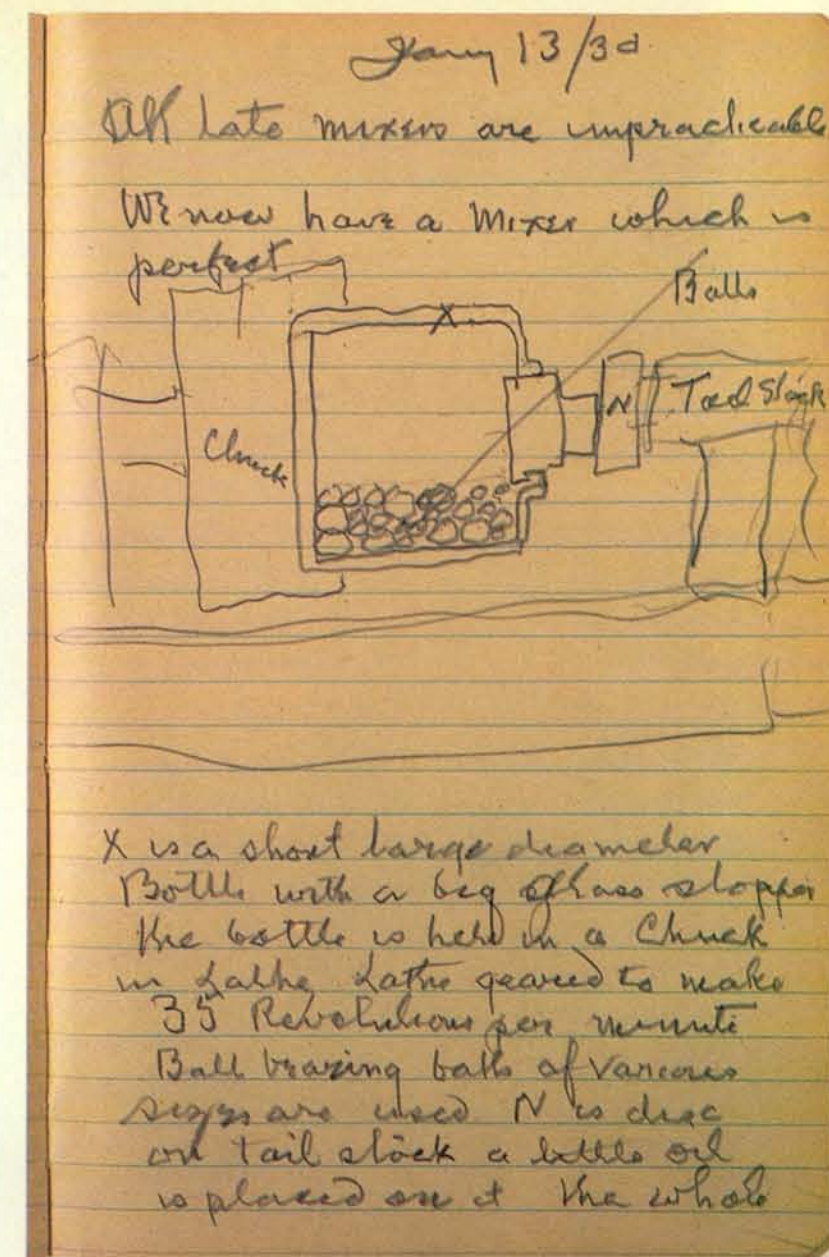 Jany 13/30
All late mixers are impracticable
We now have a Mixer which is
perfect
X
Balls
Chuck
N
Tail Stock
X is a short large diameter
Bottle with a big glass stopper
the bottle is held in a Chuck
in Lathe Lathe geared to make
35 Revolutions per minute
Ball bearing balls of various
sizes are used N is disc
on tail stock a little oil
is placed on it the whole